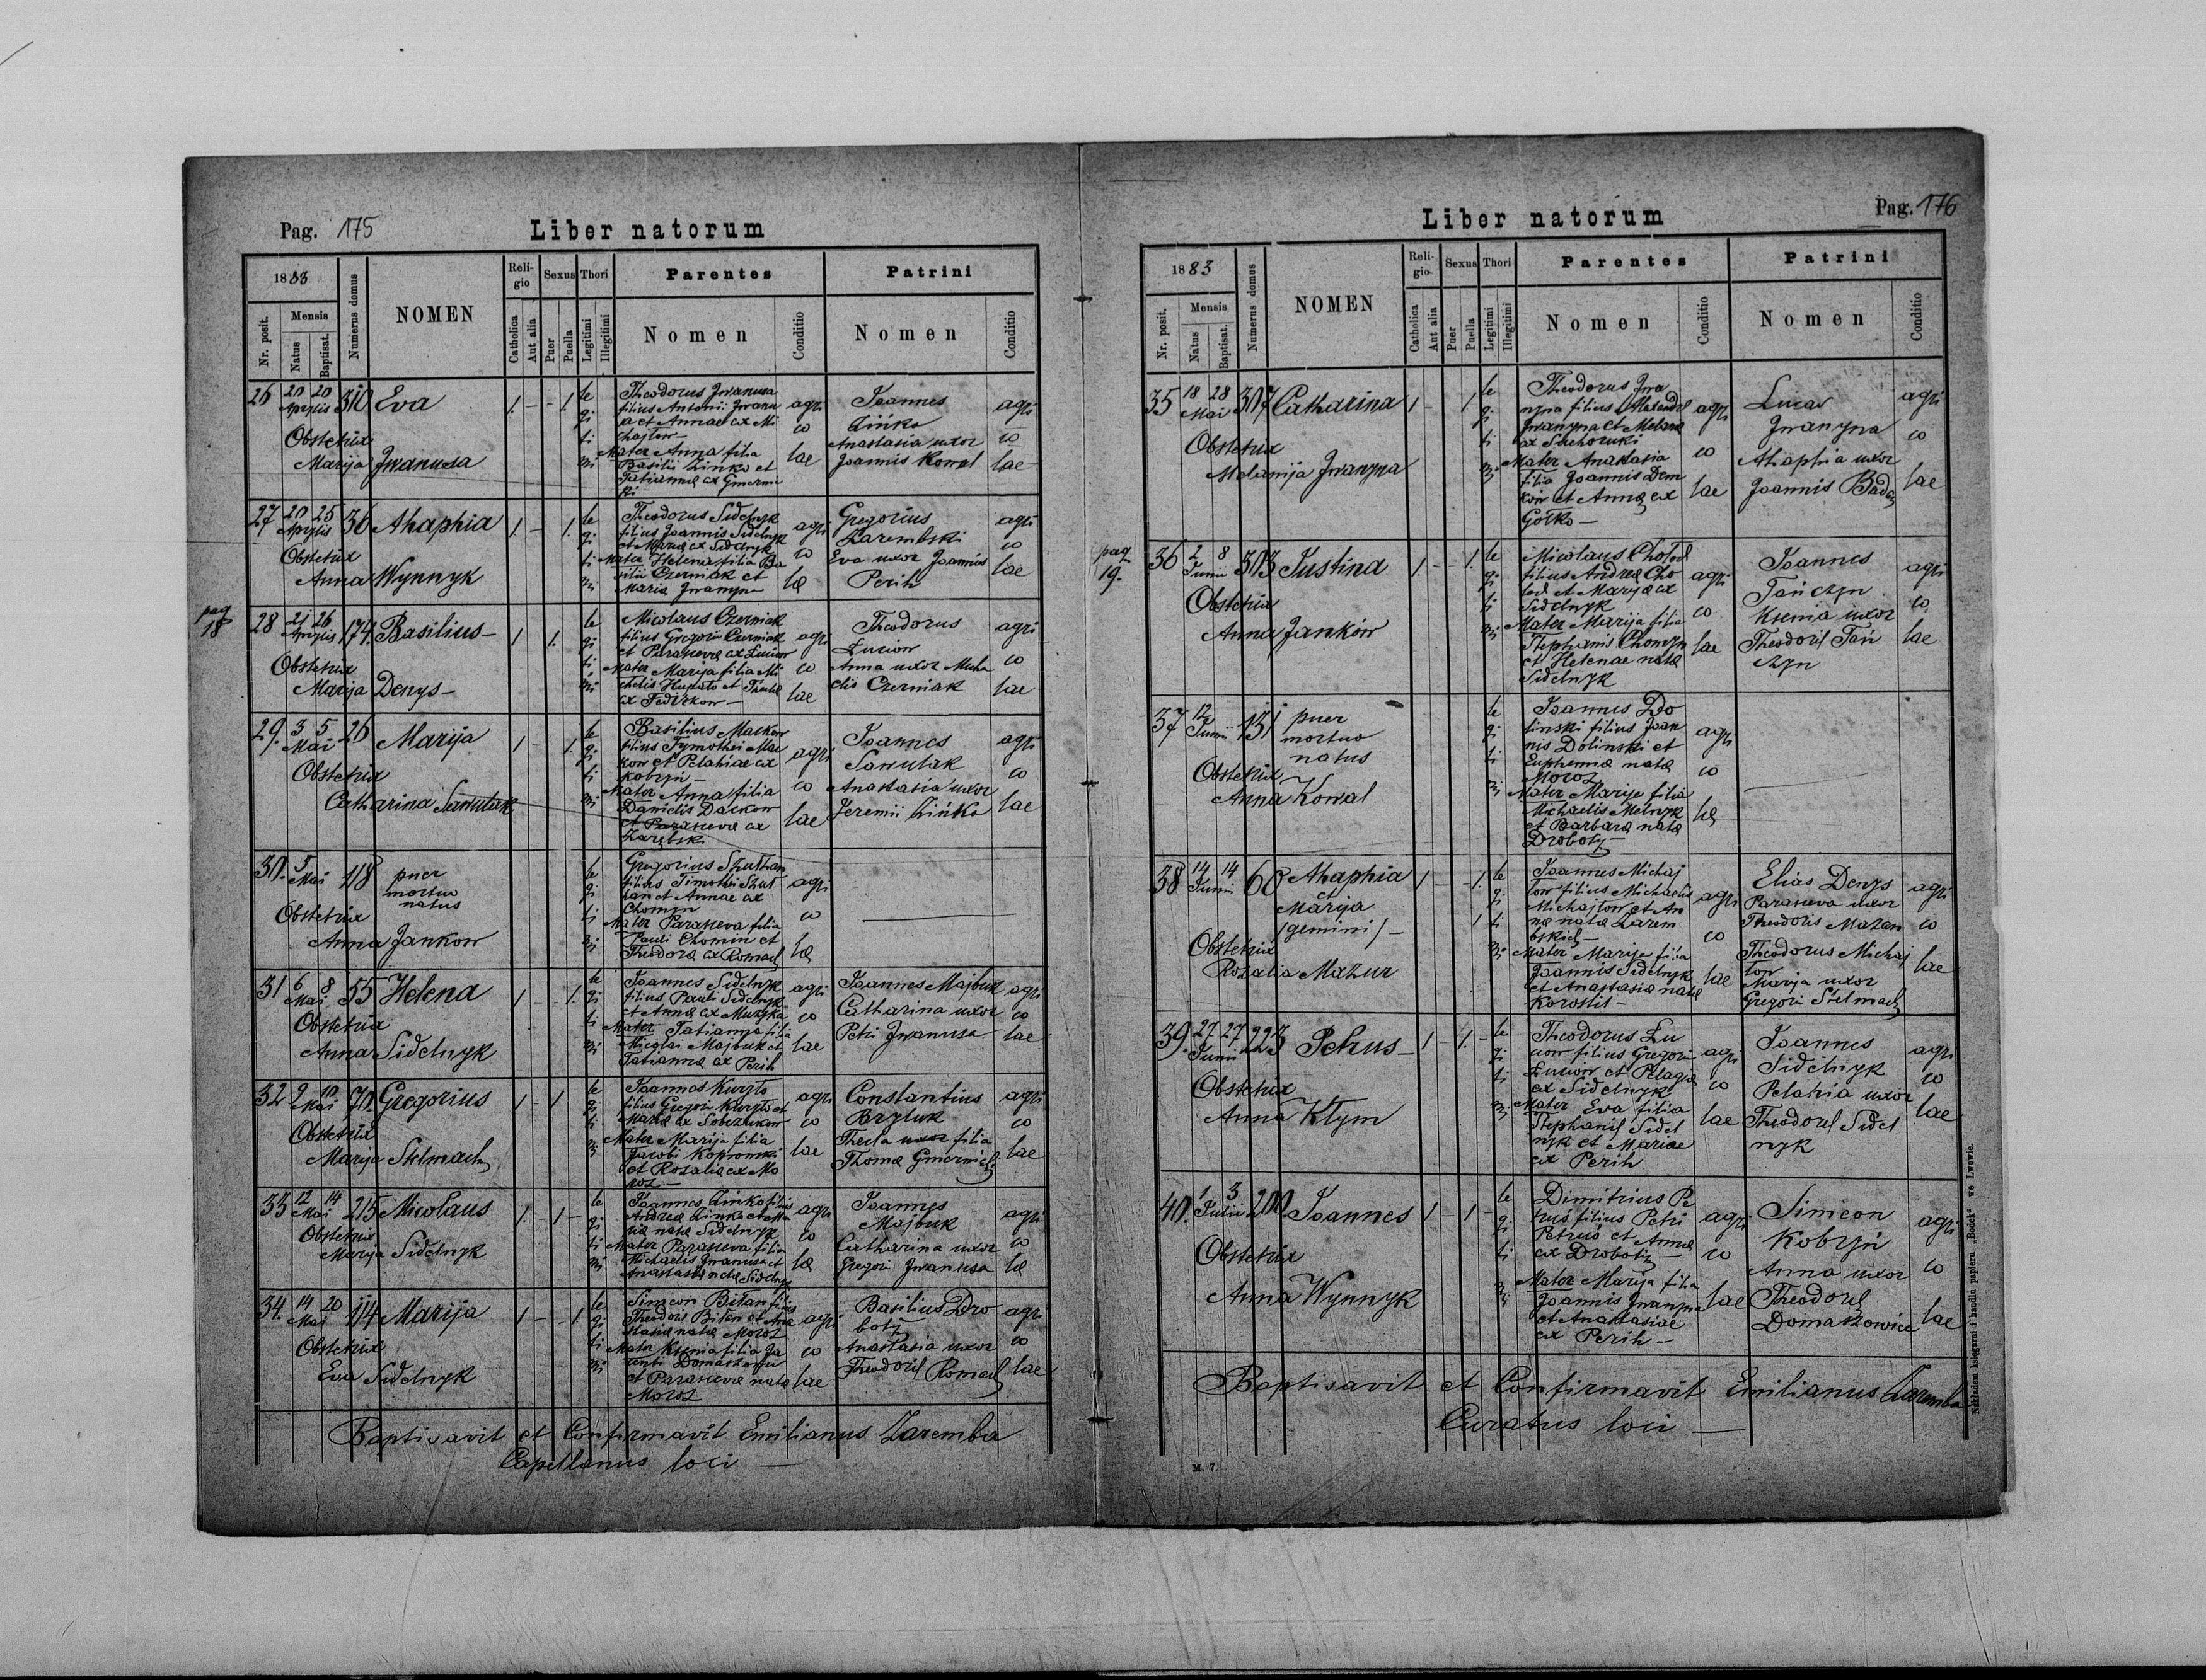 Pag. 175
Liber natorum
1883
Nr. posit.
Mensis
Natus
Baptisat.
Numerus domus
NOMEN
Religio
Catholica
Aut alia
Sexus
Puer
Puella
Thori
Legitimi
Illegitimi
Parentes
Nomen
Conditio
Patrini
Nomen
Conditio
26 20 20 Aprilis 310 Eva
Obstetrix
Marija Iwanusa
1. - - 1. legitimi
Theodorus Iwanusa
filius Antonii Iwanu
sa et Annae ex Mi
chajłow -
Mater Anna filia
Basilii Zinko et
Tatianna ex
agricolae
Joannes
Zińko
Anastasia uxor
Joannis Kowal
agricolae
27 20 25 Aprilis 36 Ahaphia
Obstetrix
Anna Wynnyk
1. - 1. legitimi
Theodorus Sidelnyk
filius Joannis Sidelnyk
et Mariæ ex Sidelnyk
Mater Helena filia Ba
silii Czerniak et
Maria Iwanyna
agricolæ
Gregorius
Zarembski
Eva uxor Joannis
Perih
agricolae
pag 18
28 21 26 Aprilis 174. Basilius -
Obstetrix
Marija Denys -
1 1. legitimi
Micolaus Czerniak
filius Gregorii Czerniak
et Parasceva ex Łuciow
Mater Marija filia Mi
chelis et Thecle
ex Fedczkow -
agricolae
Theodorus
Łuciow
Anna uxor Micha
elis Czerniak
agricolae
29. 3 5 Mai 26 Marija
Obstetrix
Catharina Sawulak
1 - 1. legitimi
Basilius Mackow
filius Tymothei Mac
kow et Pelahiae ex
Kobryń -
Mater Anna filia
Danielis Dackow
et Parasceva ex
agricolae
Joannes
Sawulak
Anastasia uxor
Jeremii Zińko
agricolae
30. 5 Mai 118 puer
mortuo
natus
Obstetrix
Anna Jankow
legitimi
Gregorius Szuthan
filius Timothei Szut
han et Annae ex
Chomyn
Mater Parasceva filia
Pauli Chomin et
Theodora ex Romach
agricolæ
31 6 8 Mai 55 Helena
Obstetrix
Anna Sidelnyk
1 - - 1. legitimi
Joannes Sidelnyk
filius Pauli Sidelnyk
et Annæ ex Muzyka
Mater Tatianna filia
Micolai Majbuk et
Tatianna ex Perih
agricolae
Joannes Majbuk
Catharina uxor
Petri Iwanusa
agricolae
32 9 10 Mai 70. Gregorius
Obstetrix
Marija Stelmach
1 - 1 legitimi
Joannes Kuryło
filius Gregorii Kuryło et
Maria ex
Mater Marija filia
Jacobi Koprowski
et Rosalia ex Mo
roz -
agricolae
Constantius
Bryluk
Thecla uxor filia
Thoma
agricolae
33 12 14 Mai 215 Micolaus
Obstetrix
Marija Sidelnyk
1. - 1 - legitimi
Joannes Zinko filius
Andreæ Zinko et Ma
riæ natæ Sidelnyk
Mater Parasceva filia
Michaelis Iwanusa et
Anastasiæ natæ Sidelnyk
agricolæ
Joannes
Majbuk
Catharina uxor
Gregorii Iwanusa
agricolæ
34. 14 20 Mai 114 Marija
Obstetrix
Eva Sidelnyk
1 - - 1 legitimi
Simeon Biłan filius
Theodori Biłan et Ana
stasiæ natæ Moroz
Mater Ksenia filia
et Parasceva nata
Moroz
agricolae
Basilius Dro
botij
Anastasia uxor
Theodori Romach
agricolae
Baptisavit et Confirmavit Emilianus Zaremba
Capellanus loci -
Liber natorum
Pag. 176
1883
Nr. posit.
Mensis
Natus
Baptisat.
Numerus domus
NOMEN
Religio
Catholica
Aut alia
Sexus
Puer
Puella
Thori
Legitimi
Illegitimi
Parentes
Nomen
Conditio
Patrini
Nomen
Conditio
35 18 28 Mai 307 Catharina
Obstetrix
Melanija Iwanyna
1 - 1 legitimi
Theodorus Iwa
nyna filius Alexandri
Iwanyna et Melaniæ
ex
Mater Anastasia
filia Joannis Dem
kow et Annæ ex
Gołko -
agricolae
Lucas
Iwanyna
Ahaphia uxor
Joannis
agricolae
pag 19.
36 2 8 Junii 303 Justina
Obstetrix
Anna Jankòw
1. - - 1. legitimi
Micolaus Chołod
filius Andreæ Cho
łod et Maryæ ex
Sidelnyk
Mater Marija filia
Stephanis Chomyn
et Helenae nata
Sidelnyk
agricolae
Joannes
Tańczyn
Ksenia uxor
Theodoris Tań
czyn
agricolae
37 12 Junii 131 puer
mortuo
natus
Obstetrix
Anna Kowal
legitimi
Joannes Do
linski filius Joan
nis Dolinski et
Euphemiæ natæ
Moroz
Mater Marija filia
Michaelis Melnyk
et Barbaræ natæ
Droboty
agricolæ
38 14 14 Junii 68 Ahaphia
et
Marija
/gemini/ -
Obstetrix
Rozalia Mazur
1 - - 1. 1 legitimi
Joannes Michaj
łow filius Michaelis
Michajłow et An
næ natæ Zarem
bskich -
Mater Marija filia
Joannis Sidelnyk
et Anastasiæ natæ
Korostil -
agricolae
Elias Denys
Parasceva uxor
Theodoris Mazan
Theodorus Michaj
łow
Marija uxor
Gregori Stelmach
agricolae
39. 27 27 Junii 223 Petrus -
Obstetrix
Anna Kłym
1 - 1. - legitimi
Theodorus Łu
ciow filius Gregorii
Łuciow et Pelagiæ
ex Sidelnyk
Mater Eva filia
Stephanis Sidel
nyk et Mariae
ex Perih
agricolae
Joannes
Sidelnyk
Pelahia uxor
Theodori Sidel
nyk
agricolae
40. 1 3 Julii 200 Joannes
Obstetrix
Anna Wynnyk
1 - 1 - legitimi
Dimitrius Pe
truś filius Petri
Petruś et Annæ
ex Droboty
Mater Marija filia
Joannis Iwanyna
et Anastasiae
ex Perih -
agricolae
Simeon
Kobryń
Anna uxor
Theodori
Domaszowicz
agricolae
Baptisavit et Confirmavit Emilianus Zaremba
Curatus loci -
M. 7.
Nakładem księgarni i handlu papieru „Bodek" we Lwowie.